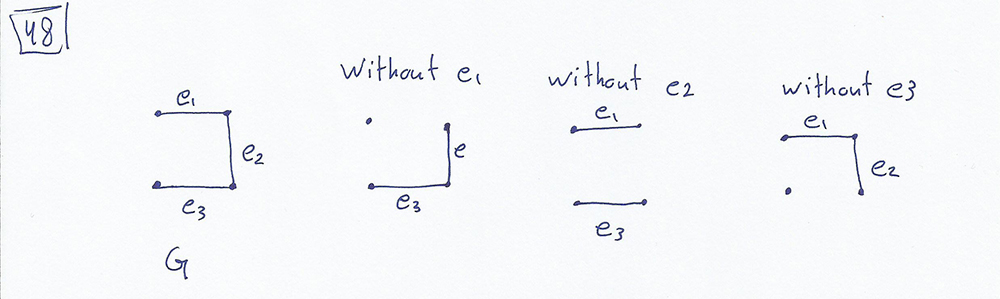 48
without e1
without e2
without e3
e1
e2
e3
G
e
e3
e1
e3
e1
e2